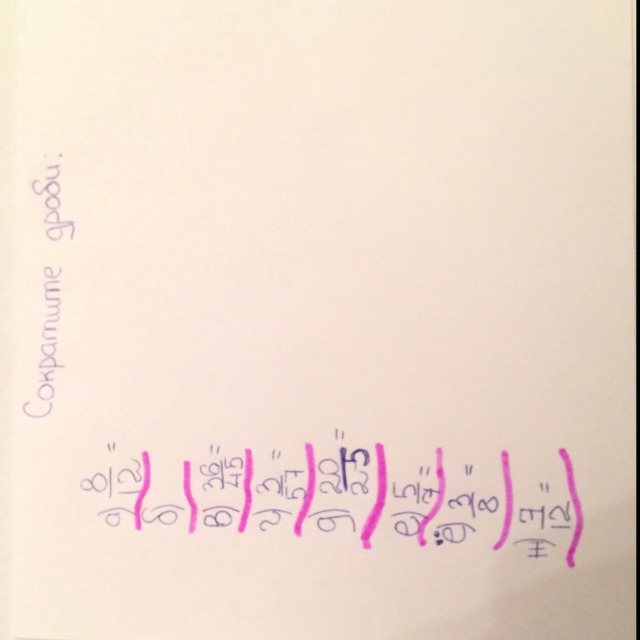 Сократите дроби:
а) 8/12 =
б)
в) 36/45 =
г) 2/54 =
д) 20/25 =
е) 5/7 =
ё) 2/8 =